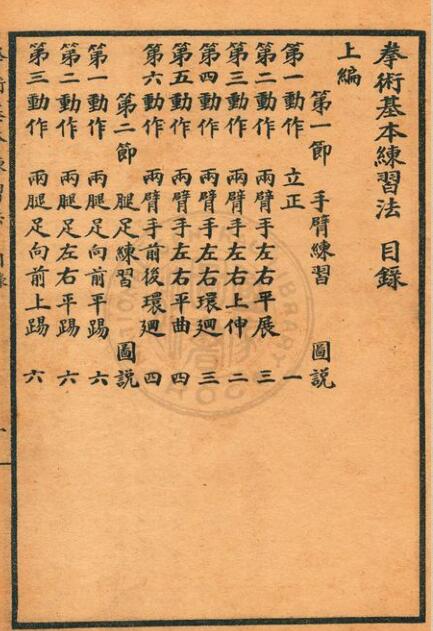 拳術基本練習法 目錄
上編
第一節 手臂練習 圖說
第一動作 立正 一
第二動作 兩臂手左右平展 三
第三動作 兩臂手左右上伸 二
第四動作 兩臂手左右環廻 三
第五動作 兩臂手左右平曲 四
第六動作 兩臂手前後環廻 四
第二節 腿足練習 圖說
第一動作 兩腿足向前平踢 六
第二動作 兩腿足左右平踢 六
第三動作 兩腿足向前上踢 六